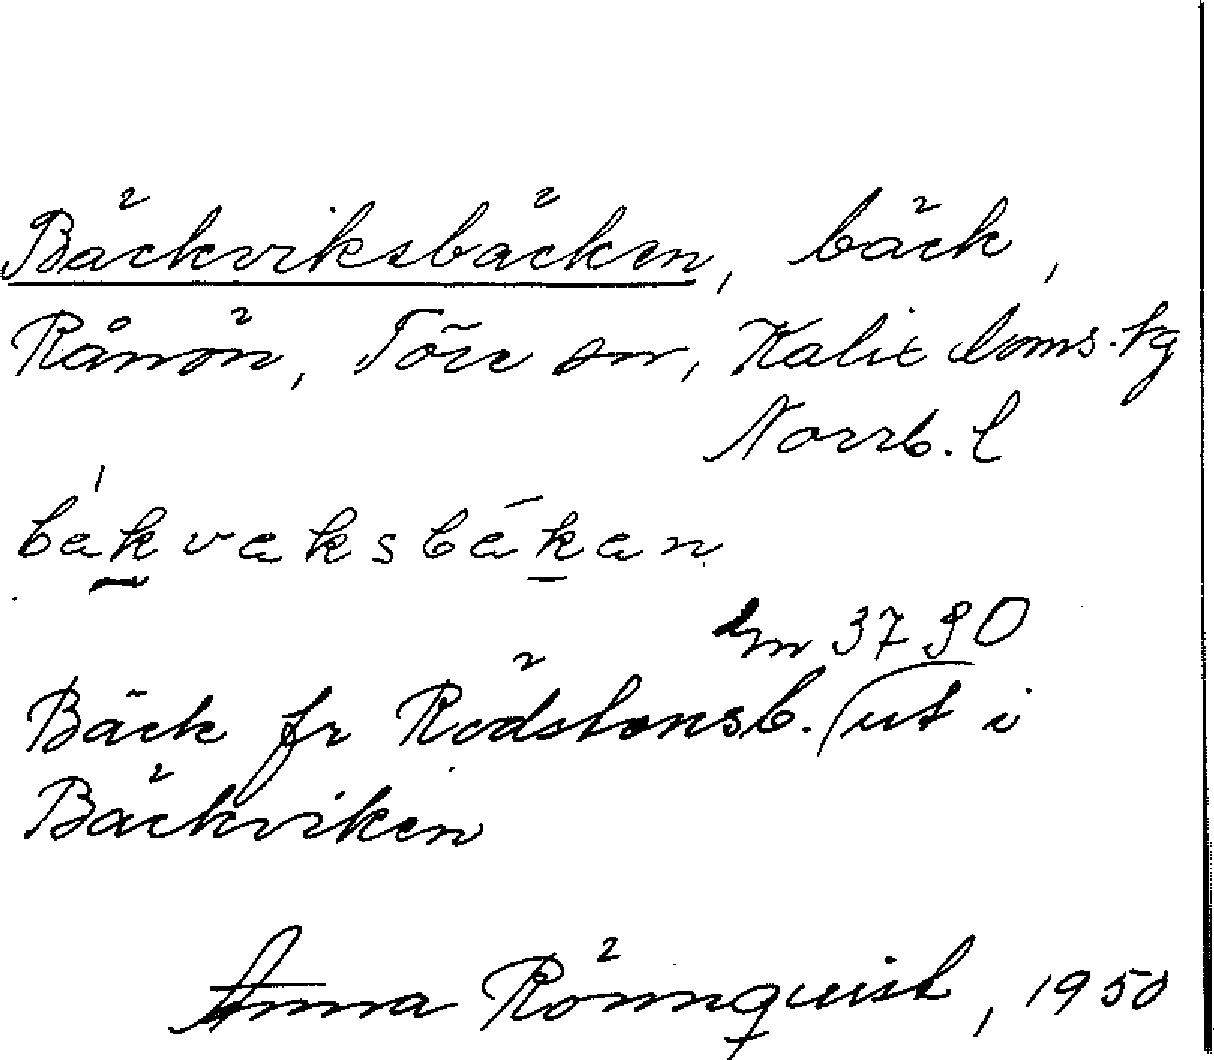 Bäckviksbäcken, bäck,
Rånön, Töre sn, Kalix doms. tg
Norrb. l
bákvaksbákan
3790
Bäck fr Rödstensb. ut i
Bäckviken
Anna Rönnquist, 1950